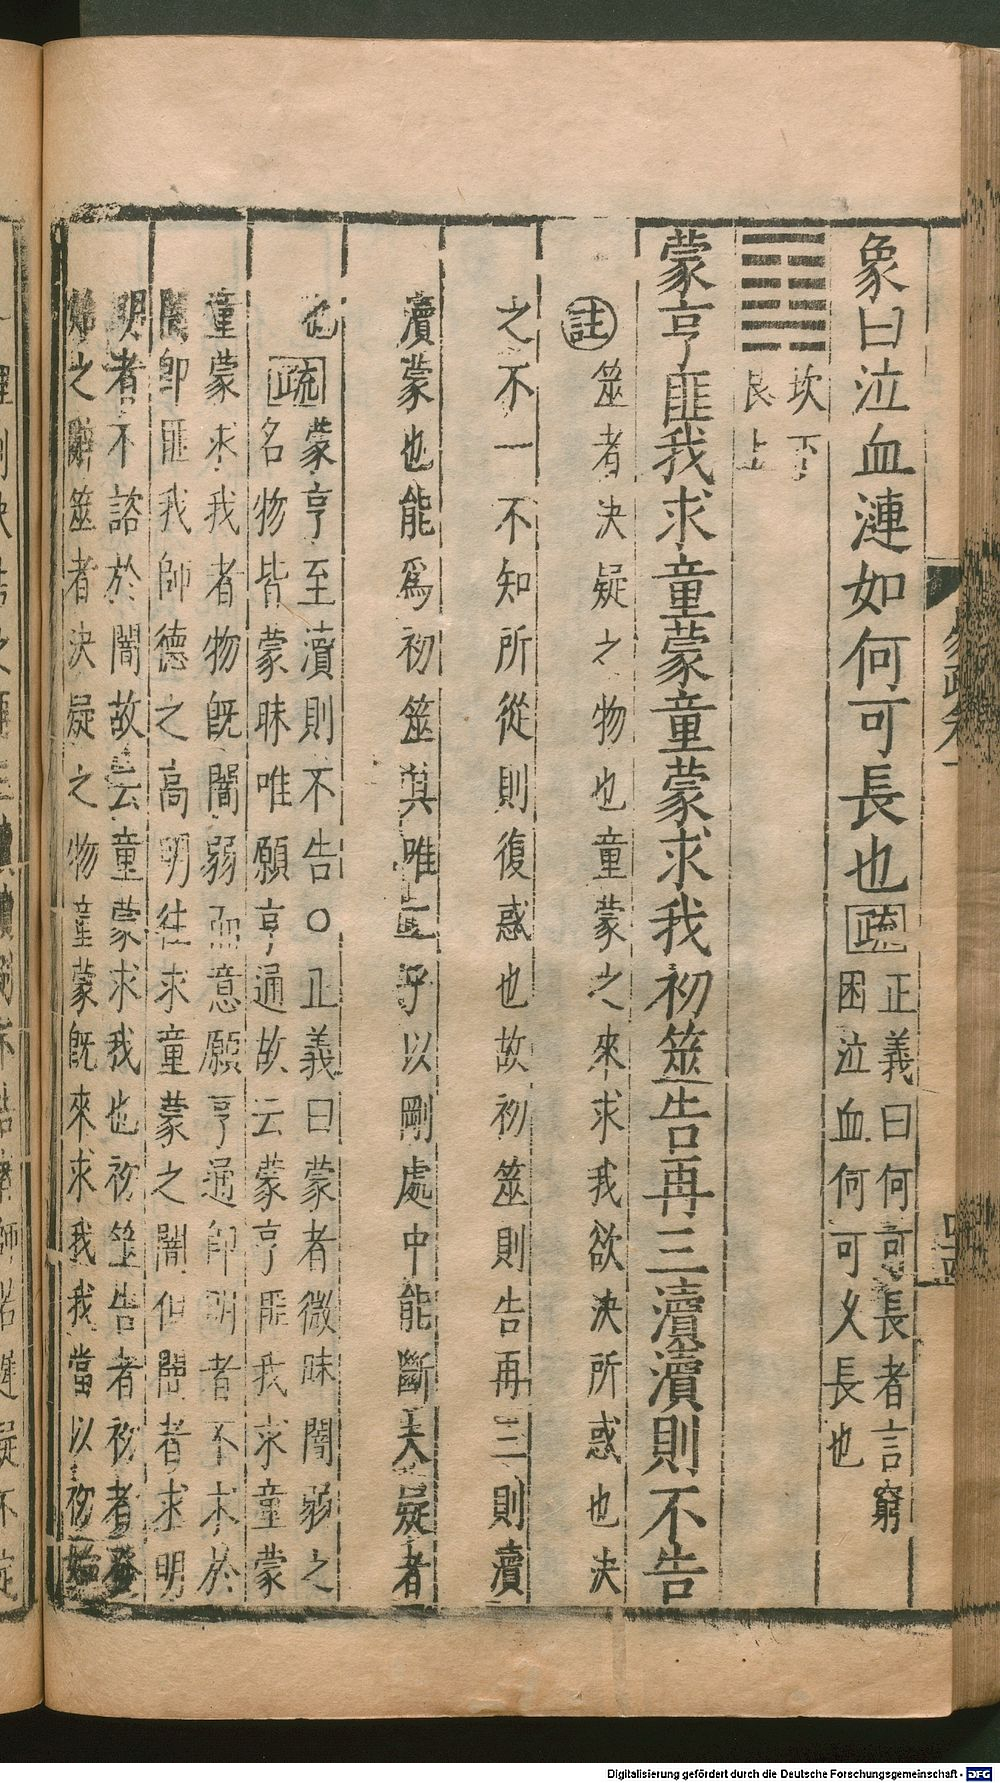 象曰泣血漣如何可長也疏正義曰何可長者言窮
困泣血何可乂長也
坎下
艮上
蒙亨匪我求童蒙童蒙求我初筮告再三瀆瀆則不告
註筮者決疑之物也童蒙之來求我欲決所惑也決
之不一不知所從則復惑也故初筮則告再三則瀆
瀆蒙也能爲初筮其唯二乎以剛處中能斷夫疑者
也疏蒙亨至瀆則不告○正義曰蒙者微昧闇弱之
名物皆蒙昧唯願亨通故云蒙亨匪我求童蒙
童蒙求我者物旣闇弱而意願亨通卽明者不求於
闇卽匪我師德之高明往求童蒙之闇但闇者求明
明者不諮於闇故云童蒙求我也初筮告者初者發
始之辭筮者決疑之物童蒙旣來求我我當以初始
Digitalisierung gefördert durch die Deutsche Forschungsgemeinschaft - DFG